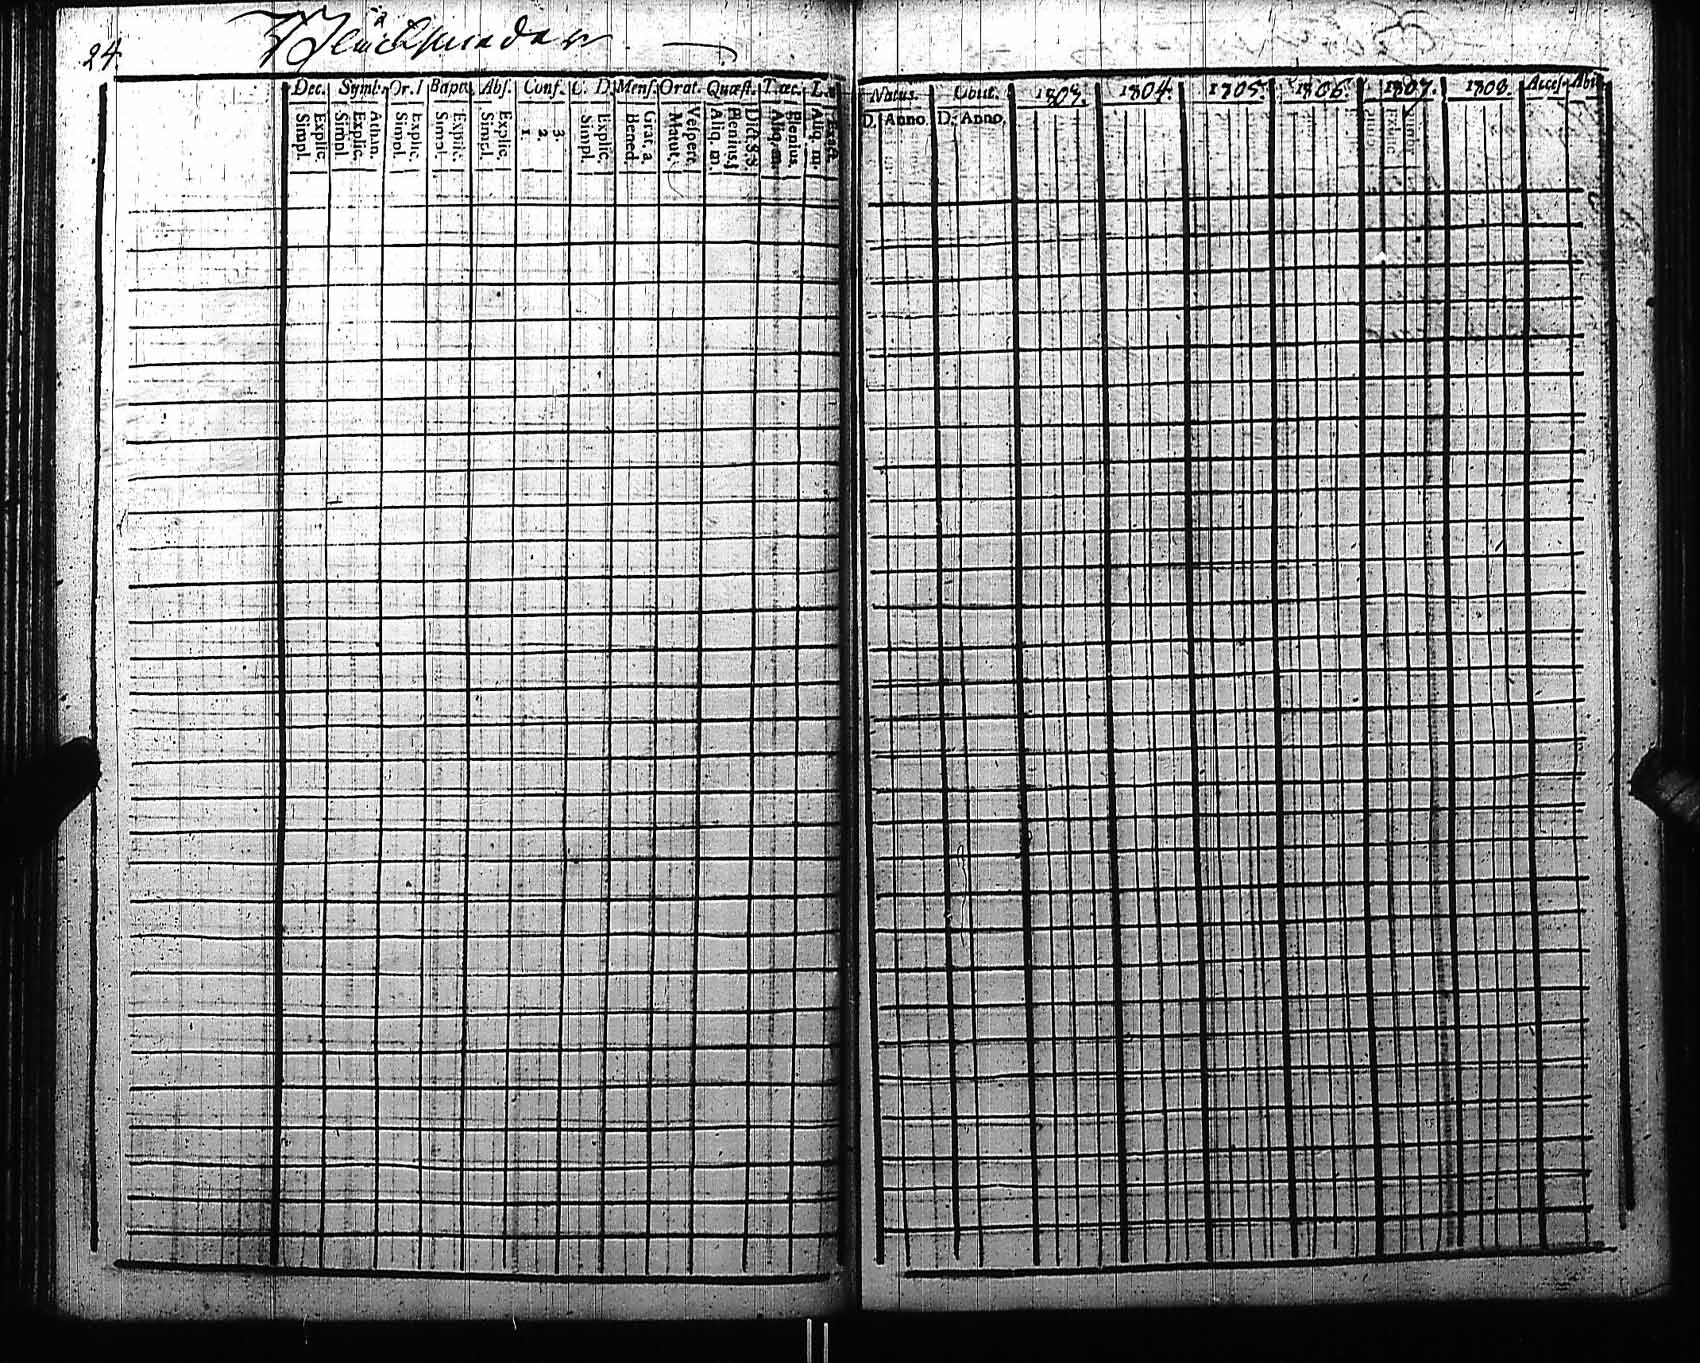 24.
Dec. Symb. Or. D Bapt. Abs. Conf. C. D. Mens. Orat. Quæst. T. œc.
Explic. Simpl.
Athan. Explic. Simpl.
Explic. Simpl.
Explic. Simpl.
Explic. Simpl.
3. 2. 1.
Explic. Simpl.
Grat. a Bened.
Vespert. Matut.
Dict. S. S. Plenius. Aliq. m.
Plenius. Aliq. m.
Exact. Aliq. m.
Natus. Obiit. 1803. 1804. 1805. 1806. 1807. 1808. Access. Abit.
D. Anno. D. Anno.